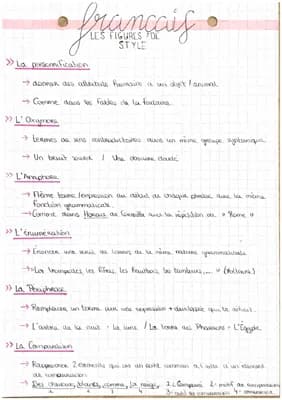 français
LES FIGURES DE
STYLE
>> La personnification
→ donner des attributs humains à un objet / animal
→ Comme dans les fables de la fontaine.
>> L'Oxymore
→ termes de sens contradictoires dans un même groupe syntaxique
→ Un bruit sourd / Une obscure clarté
>> L'Anaphore
→ Même terme/expression au début de chaque phrase avec la même
fonction grammaticale.
→ Comme dans Horace de Corneille avec la répétition de "Rome"
>> L'énumération
→ Énoncer une série de termes de la même nature grammaticale
→ "Les trompettes, les fifres, les hautbois, les tambours,..." (Voltaire)
>> La Périphrase
→ Remplacer un terme par une expression + développée qui le définit.
→ L'astre de la nuit - La lune / La terre des Pharaons - L'Égypte.
>> La Comparaison
→ Rapprocher 2 éléments qui ont un point commun à l'aide d'un élément
de comparaison
→ Des cheveux blancs comme la neige 1. Comparé 2. point de comparaison
1 2 3 4 3. outil de comparaison 4. comparant